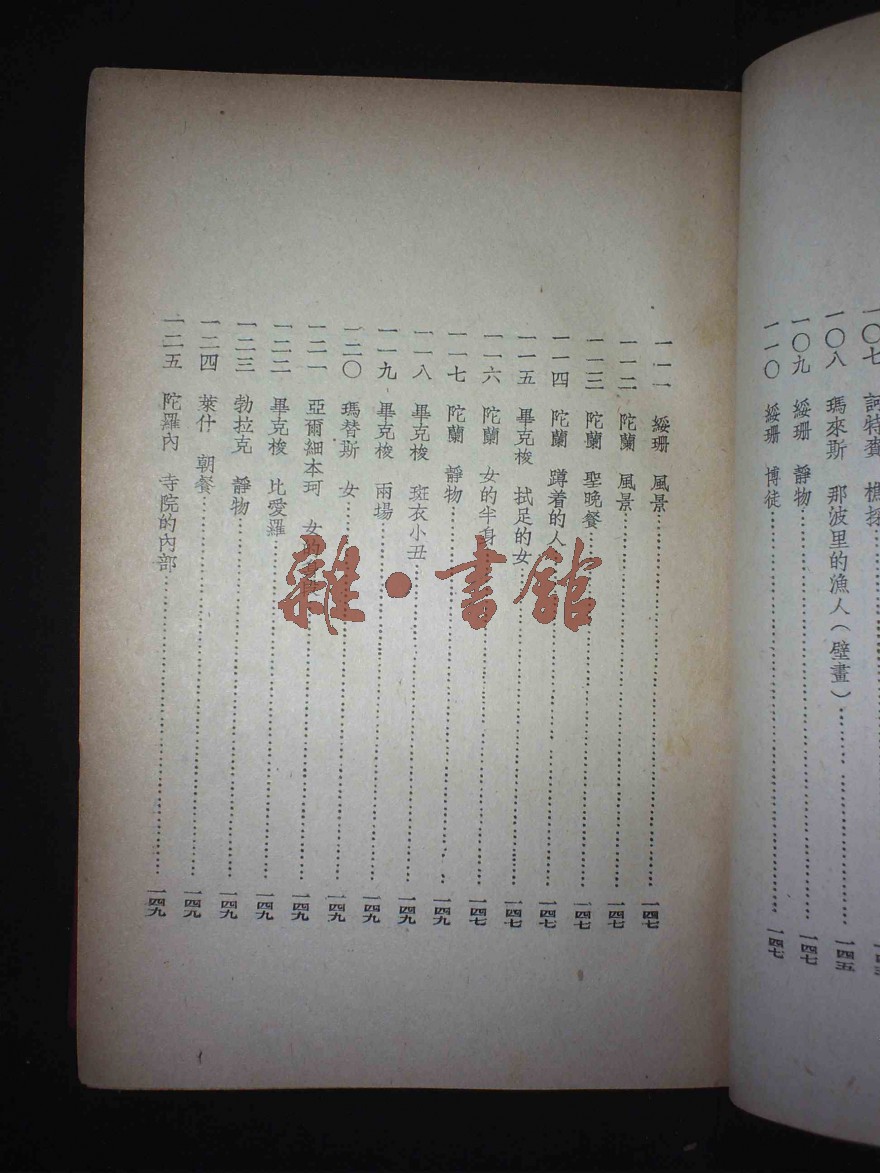 一〇七
一〇八 瑪來斯 那波里的漁人（壁畫）……一四五
一〇九 綏珊 靜物……一四七
一一〇 綏珊 博徒……一四七
一一一 綏珊 風景……一四七
一一二 陀蘭 風景……一四七
一一三 陀蘭 聖晚餐……一四七
一一四 陀蘭 蹲着的人……一四七
一一五 畢克梭 拭足的女……一四七
一一六 陀蘭 女的半身……一四七
一一七 陀蘭 靜物……一四九
一一八 畢克梭 斑衣小丑……一四九
一一九 畢克梭 兩場……一四九
一二〇 瑪替斯 女……一四九
一二一 亞爾細本珂 女的……一四九
一二二 畢克梭 比愛羅……一四九
一二三 勃拉克 靜物……一四九
一二四 萊什 朝餐……一四九
一二五 陀羅內 寺院的內部……一四九
雜·書館